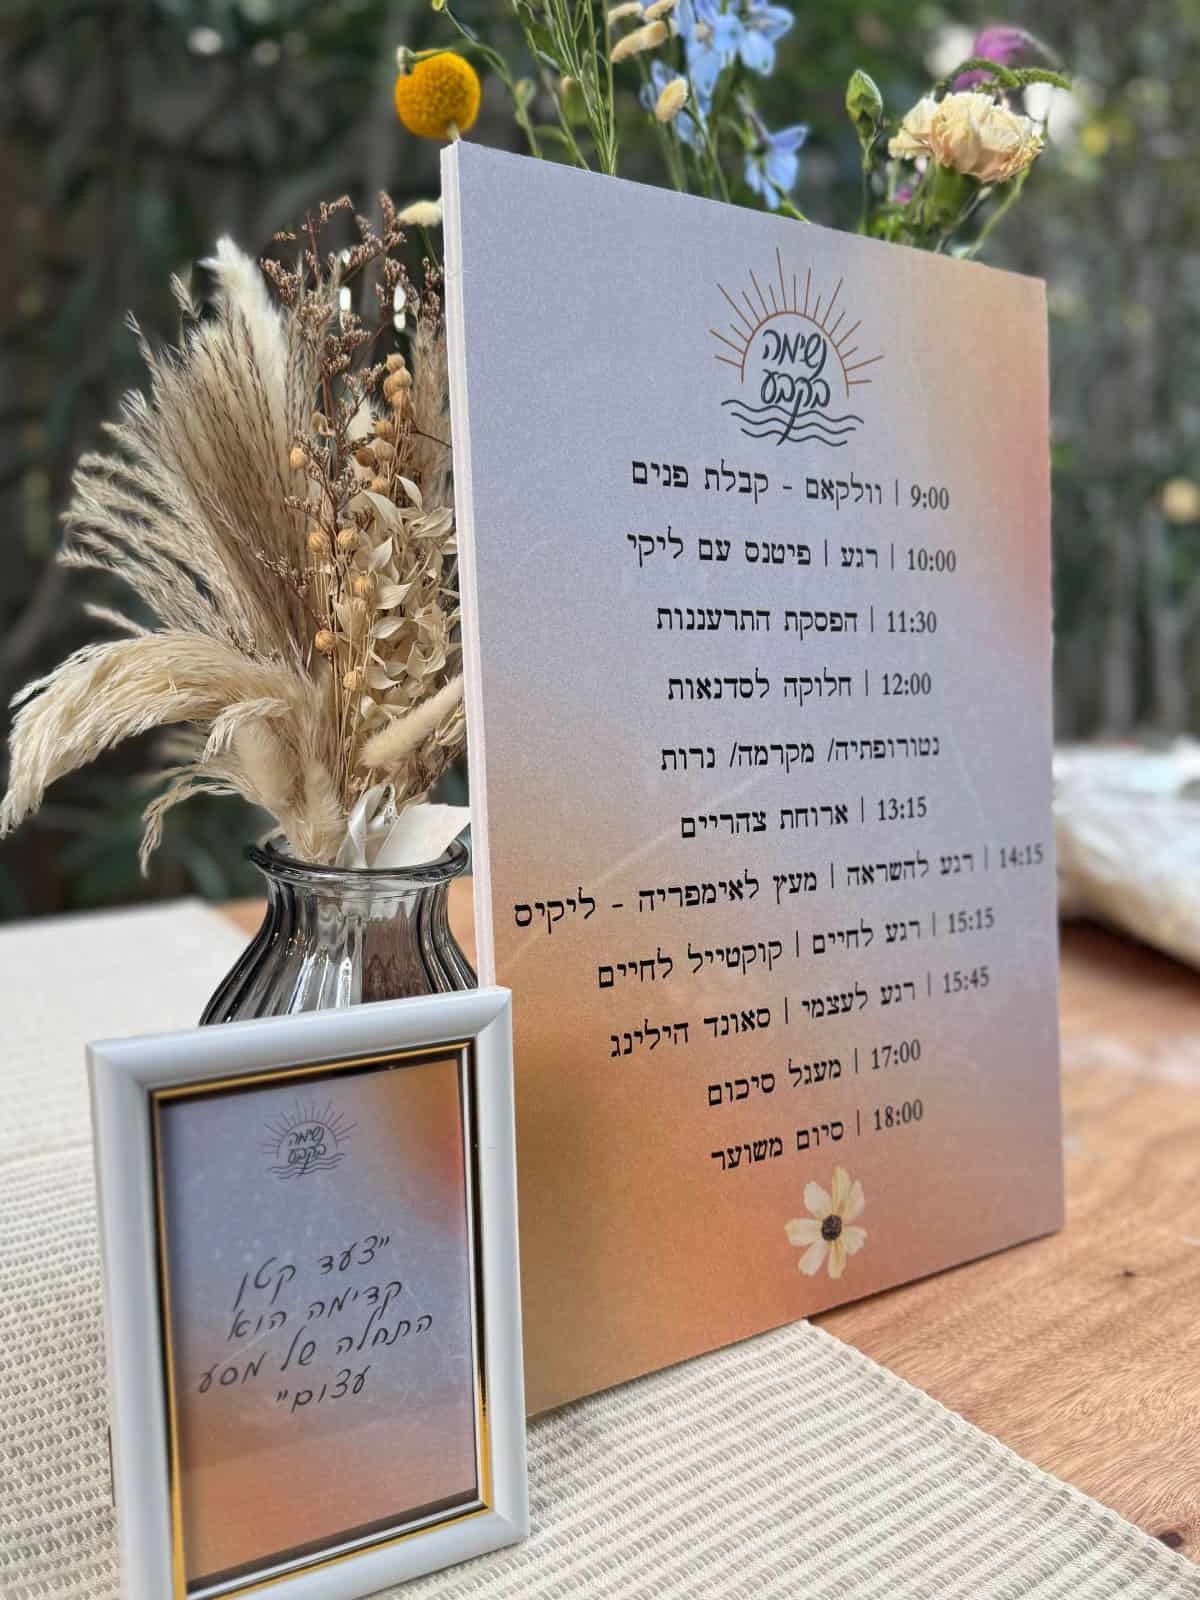 נשימה
בקבע
9:00 | וולקאם - קבלת פנים
10:00 | רגע | פיטנס עם ליקי
11:30 | הפסקת התרעננות
12:00 | חלוקה לסדנאות
נטורופתיה/ מקרמה/ נרות
13:15 | ארוחת צהריים
14:15 | רגע להשראה | מעץ לאימפריה - ליקיס
15:15 | רגע לחיים | קוקטייל לחיים
15:45 | רגע לעצמי | סאונד הילינג
17:00 | מעגל סיכום
18:00 | סיום משוער
נשימה
בקבע
"צעד קטן
קדימה הוא
התחלה של מסע
עצום"